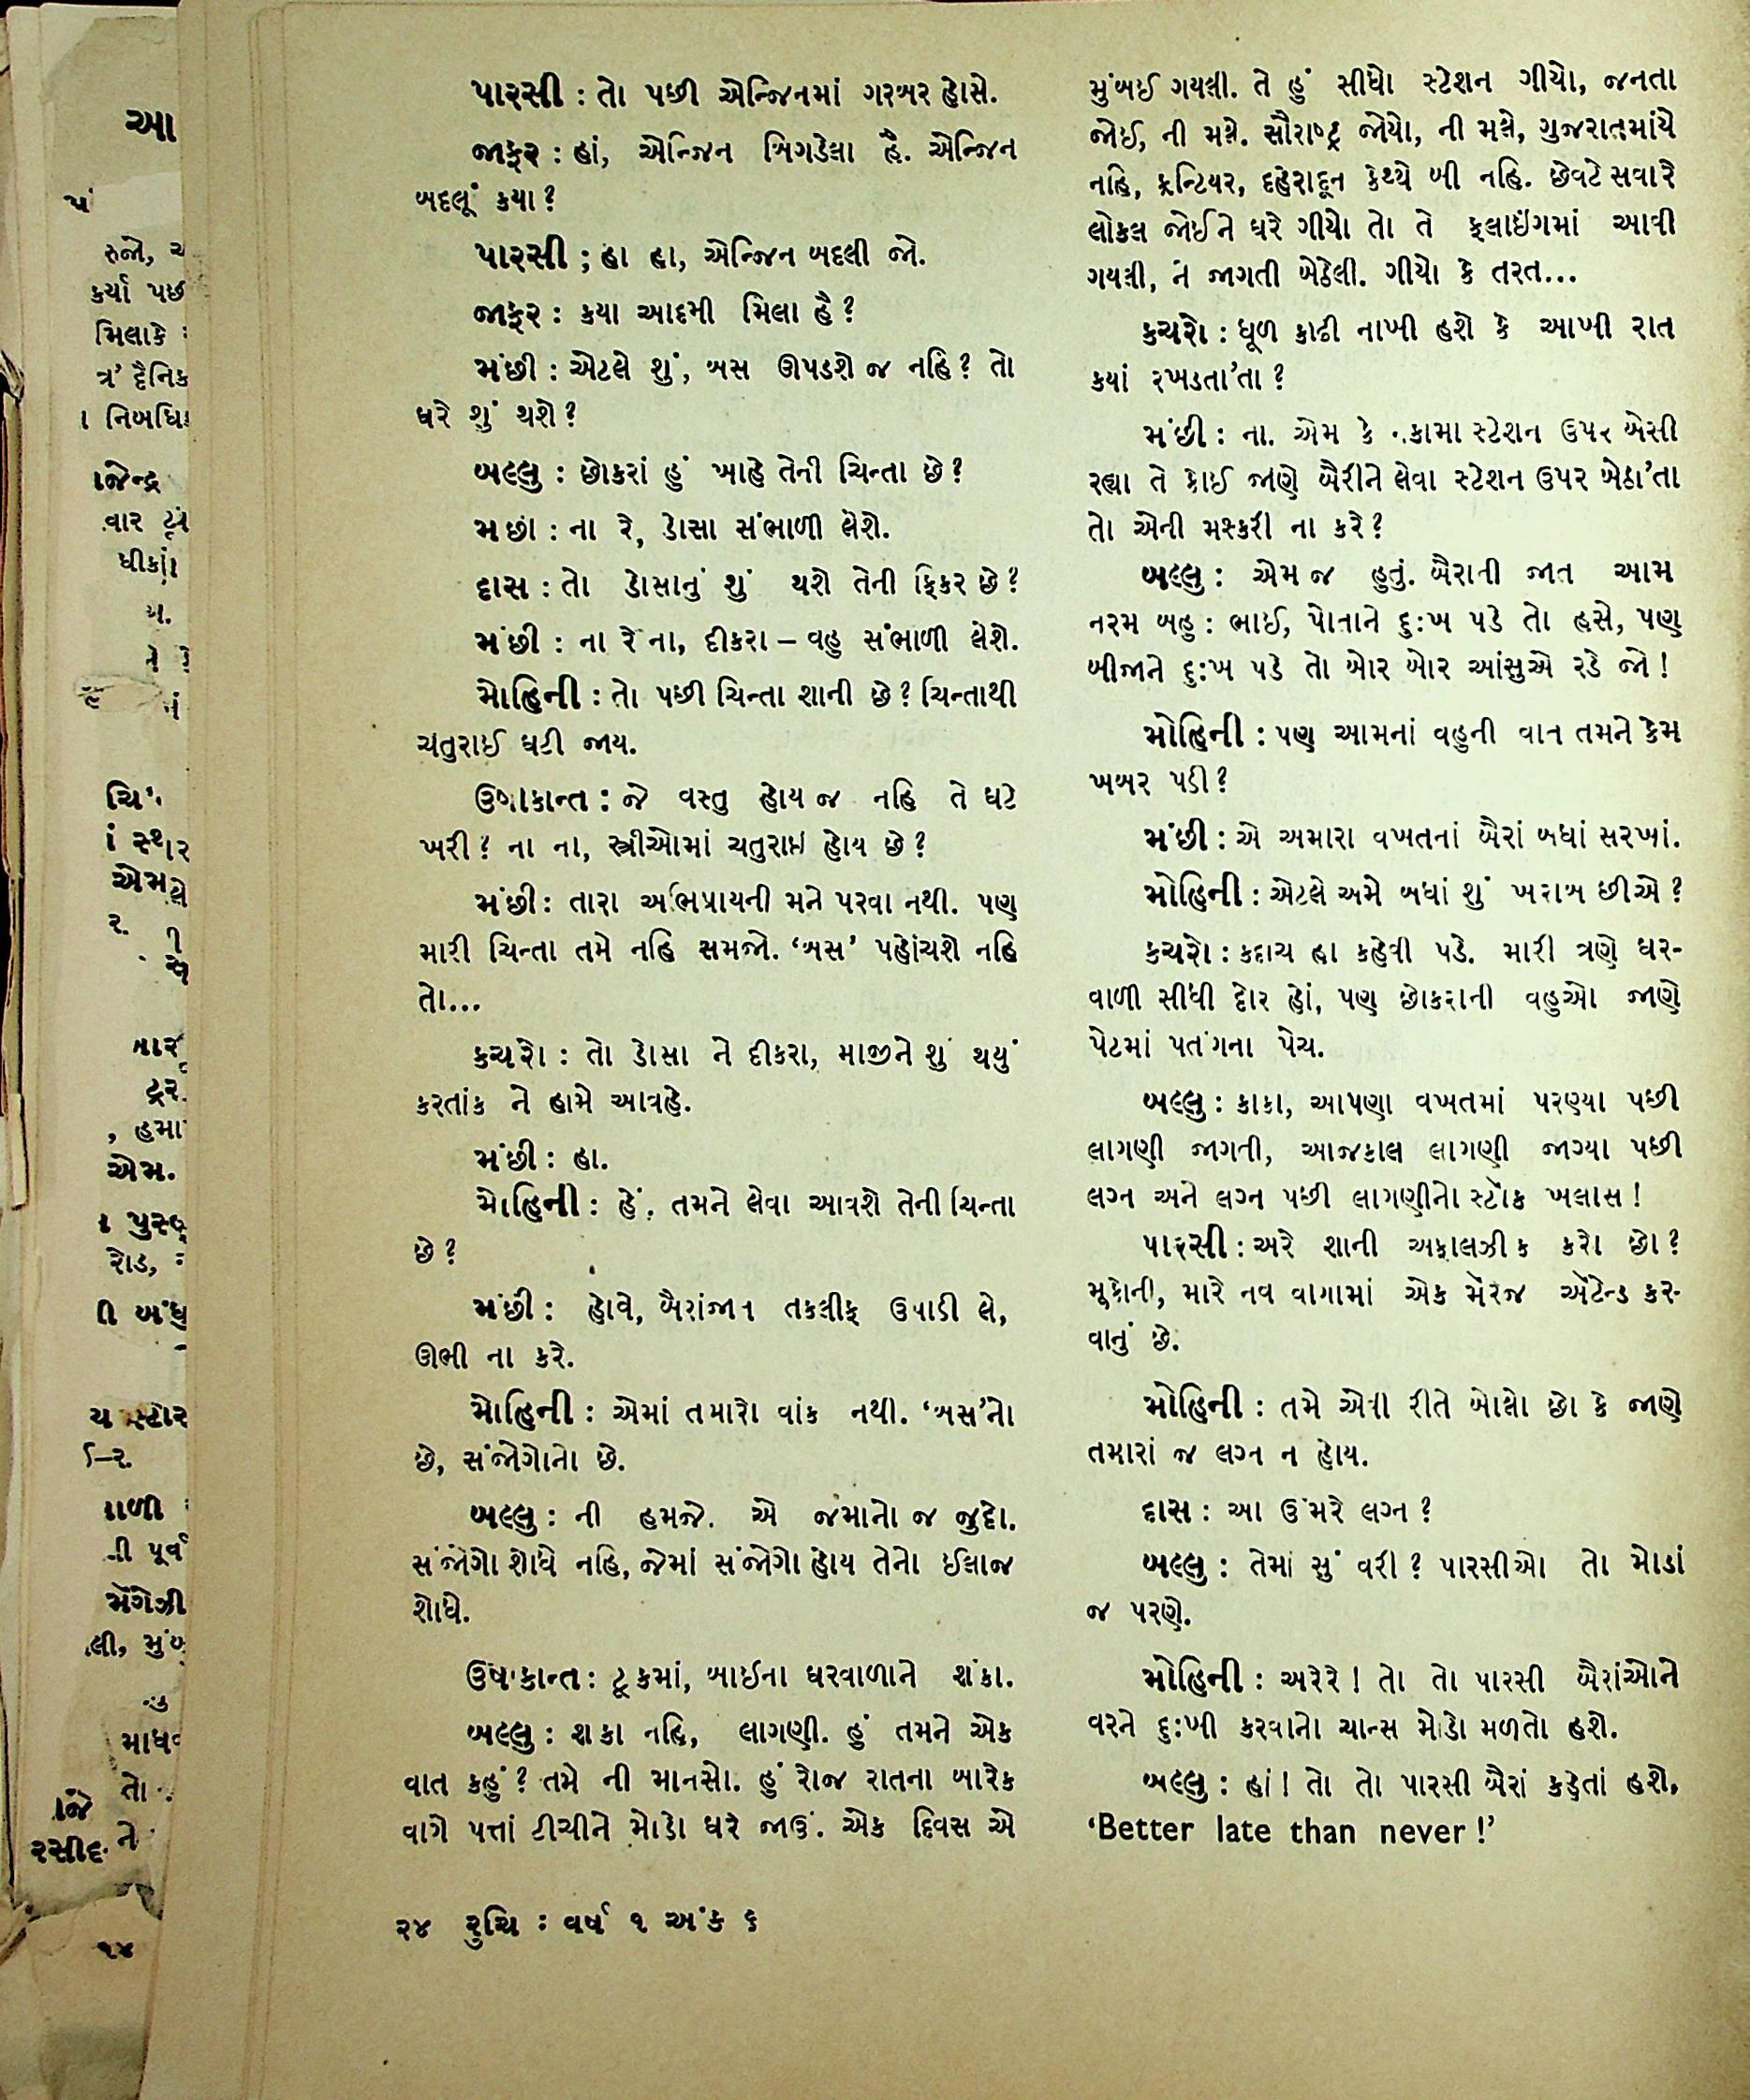 પારસી : તો પછી એન્જિનમાં ગરબર હોસે.
જાફર : હાં, એન્જિન બિગડેલા હૈ. એન્જિન
બદલૂં કયા ?
પારસી ; હા હા, એન્જિન બદલી જો.
જાફર : કયા આદમી મિલા હૈ ?
મંછી : એટલે શું, બસ ઊપડશે જ નહિ ? તો
ઘરે શું થશે ?
બલ્લુ : છોકરાં હું ખાહે તેની ચિન્તા છે ?
મછી : ના રે, ડોસા સંભાળી લેશે.
દાસ : તો ડોસાનું શું થશે તેની ફિકર છે ?
મંછી : ના રે ના, દીકરા – વહુ સંભાળી લેશે.
મોહિની : તો પછી ચિન્તા શાની છે ? ચિન્તાથી
ચતુરાઈ ઘટી જાય.
ઉષાકાન્ત : જે વસ્તુ હોય જ નહિ તે ઘટે
ખરી ? ના ના, સ્ત્રીઓમાં ચતુરાઈ હોય છે ?
મંછી : તારા અભિપ્રાયની મને પરવા નથી. પણ
મારી ચિન્તા તમે નહિ સમજો. ‘બસ’ પહોંચશે નહિ
તો...
કચરો : તો ડોસા ને દીકરા, માજીને શું થયું
કરતાંક ને હામે આવહે.
મંછી : હા.
મોહિની : હેં, તમને લેવા આવશે તેની ચિન્તા
છે ?
મંછી : હોવે, બૈરાંજાત તકલીફ ઉપાડી લે,
ઊભી ના કરે.
મોહિની : એમાં તમારો વાંક નથી. ‘બસ’નો
છે, સંજોગોનો છે.
બલ્લુ : ની હમજે. એ જમાનો જ જુદો.
સંજોગો શોધે નહિ, જેમાં સંજોગો હોય તેનો ઈલાજ
શોધે.
ઉષાકાન્ત : ટૂકમાં, બાઈના ઘરવાળાને શંકા.
બલ્લુ : શકા નહિ, લાગણી. હું તમને એક
વાત કહું ? તમે ની માનસો. હું રોજ રાતના બારેક
વાગે પત્તાં ટીચીને મોડો ઘરે જાઉં. એક દિવસ એ
મુંબઈ ગયલી. તે હું સીધો સ્ટેશન ગીયો, જનતા
જોઈ, ની મલે. સૌરાષ્ટ્ર જોયો, ની મલે, ગુજરાતમાંયે
નહિ, ફ્રન્ટિયર, દહેરાદૂન કેથ્યે બી નહિ. છેવટે સવારે
લોકલ જોઈને ઘરે ગીયો તો તે ફ્લાઇંગમાં આવી
ગયલી, ને જાગતી બેઠેલી. ગીયો કે તરત...
કચરો : ધૂળ કાઢી નાખી હશે કે આખી રાત
કયાં રખડતા’તા ?
મંછી : ના. એમ કે નકામા સ્ટેશન ઉપર બેસી
રહ્યા તે કોઈ જાણે બૈરીને લેવા સ્ટેશન ઉપર બેઠા’તા
તો એની મશ્કરી ના કરે ?
બલ્લુ : એમ જ હુતું. બૈરાની જાત આમ
નરમ બહુ : ભાઈ, પોતાને દુ:ખ પડે તો હસે, પણ
બીજાને દુ:ખ પડે તો બોર બોર આંસુએ રડે જો !
મોહિની : પણ આમનાં વહુની વાત તમને કેમ
ખબર પડી ?
મંછી : એ અમારા વખતનાં બૈરાં બધાં સરખાં.
મોહિની : એટલે અમે બધાં શું ખરાબ છીએ ?
કચરો : કદાચ હા કહેવી પડે. મારી ત્રણે ઘર-
વાળી સીધી દોર હોં, પણ છોકરાની વહુઓ જાણે
પેટમાં પતંગના પેચ.
બલ્લુ : કાકા, આપણા વખતમાં પરણ્યા પછી
લાગણી જાગતી, આજકાલ લાગણી જાગ્યા પછી
લગ્ન અને લગ્ન પછી લાગણીનો સ્ટૉક ખલાસ !
પારસી : અરે શાની અકાલઝીક કરો છો ?
મૂકોની, મારે નવ વાગામાં એક મૅરેજ અૅટેન્ડ કર-
વાનું છે.
મોહિની : તમે એવી રીતે બોલો છો કે જાણે
તમારાં જ લગ્ન ન હોય.
દાસ : આ ઉંમરે લગ્ન ?
બલ્લુ : તેમાં સું વરી ? પારસીઓ તો મોડાં
જ પરણે.
મોહિની : અરેરે ! તો તો પારસી બૈરાંઓને
વરને દુ:ખી કરવાનો ચાન્સ મોડો મળતો હશે.
બલ્લુ : હાં ! તો તો પારસી બૈરાં કહેતાં હશે,
‘Better late than never !’
૨૪ રુચિ : વર્ષ ૧ અંક ૬